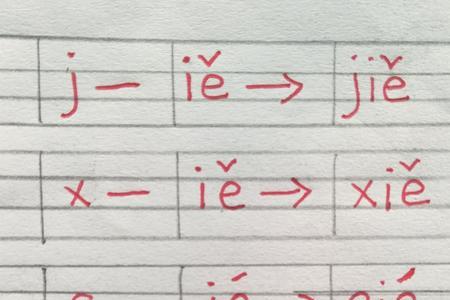 j — iě → jiě
x — iě → xiě